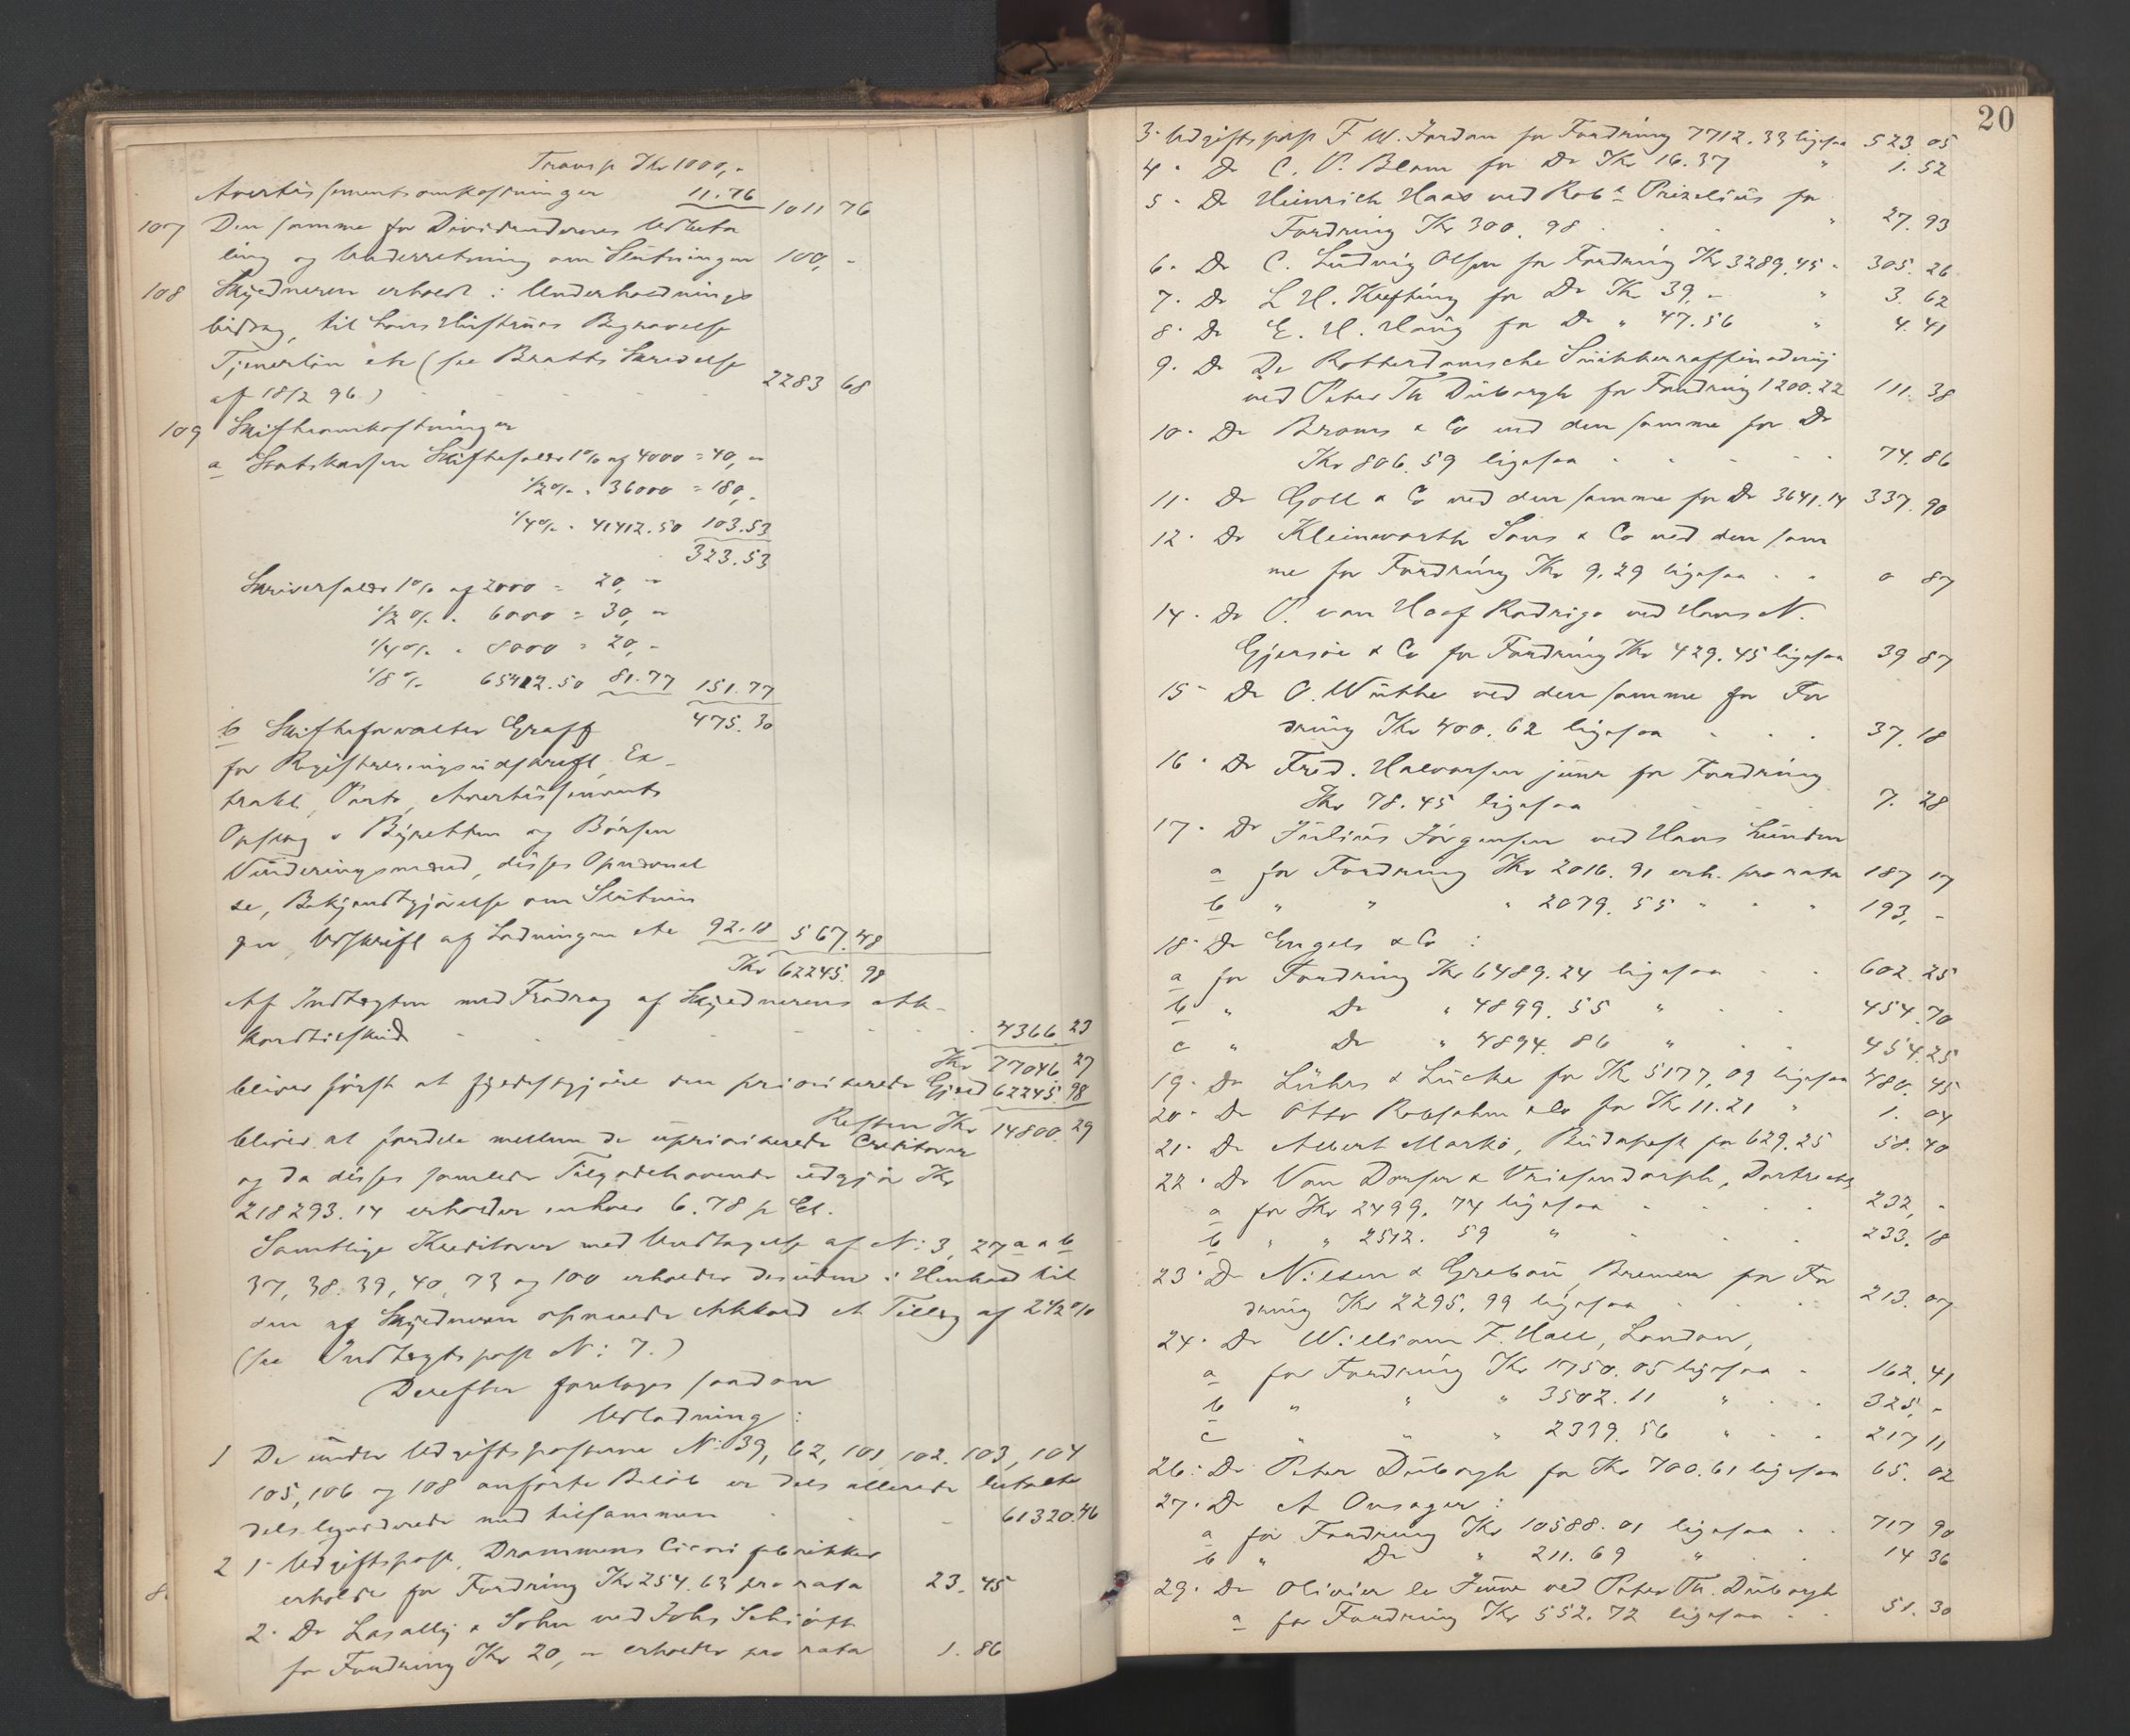 Transp Kr 1000,-
Avertissementsomkostninger 11.76 1011 76
107 Den samme for Dividendernes Udbeta
ling og Underretning om Slutningen 100, -
108 Skyldneren erholdt i Underholdnings
bidrag, til hans Hustrues Begravelse
Tjenerløn etc (see Bratts Skrivelse
af 18/2 96.) 2283 68
109 Skifteomkostninger
a Statskassen Skiftesalær 1% af 4000 = 40, -
1/2% " 36000 = 180, -
1/4% " 41412.50 103.53
323.53
Skriversalær 1% af 2000 = 20, -
1/2 % " 6000 = 30, -
1/4% " 8000 = 20, -
1/8 % 65412.50 81.77 151.77
475.30
b Skifteforvalter Graff
for Registreringsudskrift, Ex-
trakt, Porto, Avertissements
Opslag i Byretten og Börsen
Vurderingsmænd, disses Opnævnel
se, Bekjendtgjörelse om Slutnin
gen, Udskrift af Ladningen etc 92.18 567.48
Kr 62245. 98
Af Indtægten med Fradrag af Skyldnerens Ak-
kordtilskud 4366.23
Kr 77046 27
bliver først at fyldestgjöre den prioriterede Gjæld 62245.98
Resten Kr 14800.29
bliver at fordele mellem de uprioriterede Creditorer
og da disses samlede Tilgodehavende udgjör Kr
218293.14 erholder enhver 6.78 p Ct.
Samtlige Kreditorer med Undtagelse af N: 3, 27 a & b
37, 38. 39, 40, 73 og 100 erholder desuden i Henhold til
den af Skyldneren opnaaede Akkord et Tillæg af 2 1/2 %
(see Indtægtspost N: 7.)
Derefter foretoges saadan
Udlodning:
1 De under Udgiftsposterne N: 39, 62, 101, 102. 103, 104
105, 106 og 108 anförte Belöb er dels allerede betalte
dels ligviderede med tilsammen 61320.46
2 1- Udgiftspost, Drammens Cicorifabrikker
erholder for Fordring Kr 254.63 pro rata 23.45
8.
2- Do Lasally & Sohn ved Johs Schiött
for Fordring Kr 20, - erholder pro rata 1.86
20
3- Udgiftspost F W. Jordan for Fordring 7712.33 ligesaa 523 05
4 - Do C. P. Blom for Do Kr 16.37 " 1. 52
5 - Do Heinrich Haas ved Robt Prizelius for
Fordring Kr 300. 98 " 27. 93
6 - Do C. Ludvig Olsen for Fordring Kr 3289.45 " 305. 26
7 - Do L H. Kiefting for Do Kr 39, - " 3. 62
8 - Do E. H. Haug for Do " 47.56 " 4. 41
9. Do De Rotterdamsche Suikkerraffinaderij
ved Peter Th Duborgh for Fordring 1200.22 111. 38
10 - Do Broms & Co ved den samme for Do
Kr 806.59 ligesaa 74. 86
11 - Do Goll & Co ved den samme for Do 3641.14 337. 90
12 - Do Kleinworth Sons & Co ved den sam
me for Fordring Kr 9.29 ligesaa 0 87
14 - Do P. van Hoof Rodrigo ved Hans N.
Gjersöe & Co for Fordring Kr 429.45 ligesaa 39 87
15 - Do O. Wüthe ved den samme for For
dring Kr 400.62 ligesaa 37. 18
16 - Do Fred. Halvorsen junr for Fordring
Kr 78.45 ligesaa 7. 28
17 - Do Julius Jörgensen ved Hans Lunden
a for Fordring Kr 2016. 91 erh. pro rata 187 17
b " " " 2079. 55 " " " 193, -
18 - Do Engels & Co :
a for Fordring Kr 6489.24 ligesaa 602. 25
b " Do " 4899. 55 " 454. 70
c " Do " 4894. 86 " 454.25
19 - Do Lührs & Lücke for Kr 5177,09 ligesaa 480. 45
20 - Do Otto Robsahm & Co for Kr 11.21 " 1. 04
21 - Do Albert Markó, Budapest for 629.25 58. 40
22 - Do Van Donsen & Vriesendorph, Dortrecht
a for Kr 2499. 74 ligesaa 232, -
b " " 2512. 59 " 233. 18
23 - Do Nilsen & Grobau, Bremen for For
dring Kr 2295. 99 ligesaa 213. 07
24 - Do William F. Hall, London,
a for Fordring Kr 1750.05 ligesaa 162. 41
b " " " 3502.11 " 325, -
c " " " 2339. 56 " 217 11
26 - Do Peter Duborgh for Kr 700.61 ligesaa 65. 02
27 - Do A Onsager :
a for Fordring Kr 10588.01 ligesaa 717 90
b " Do " 211. 69 " 14 36
29 - Do Olivier le Jeune ved Peter Th. Duborgh
a for Fordring Kr 552. 72 ligesaa 51. 30